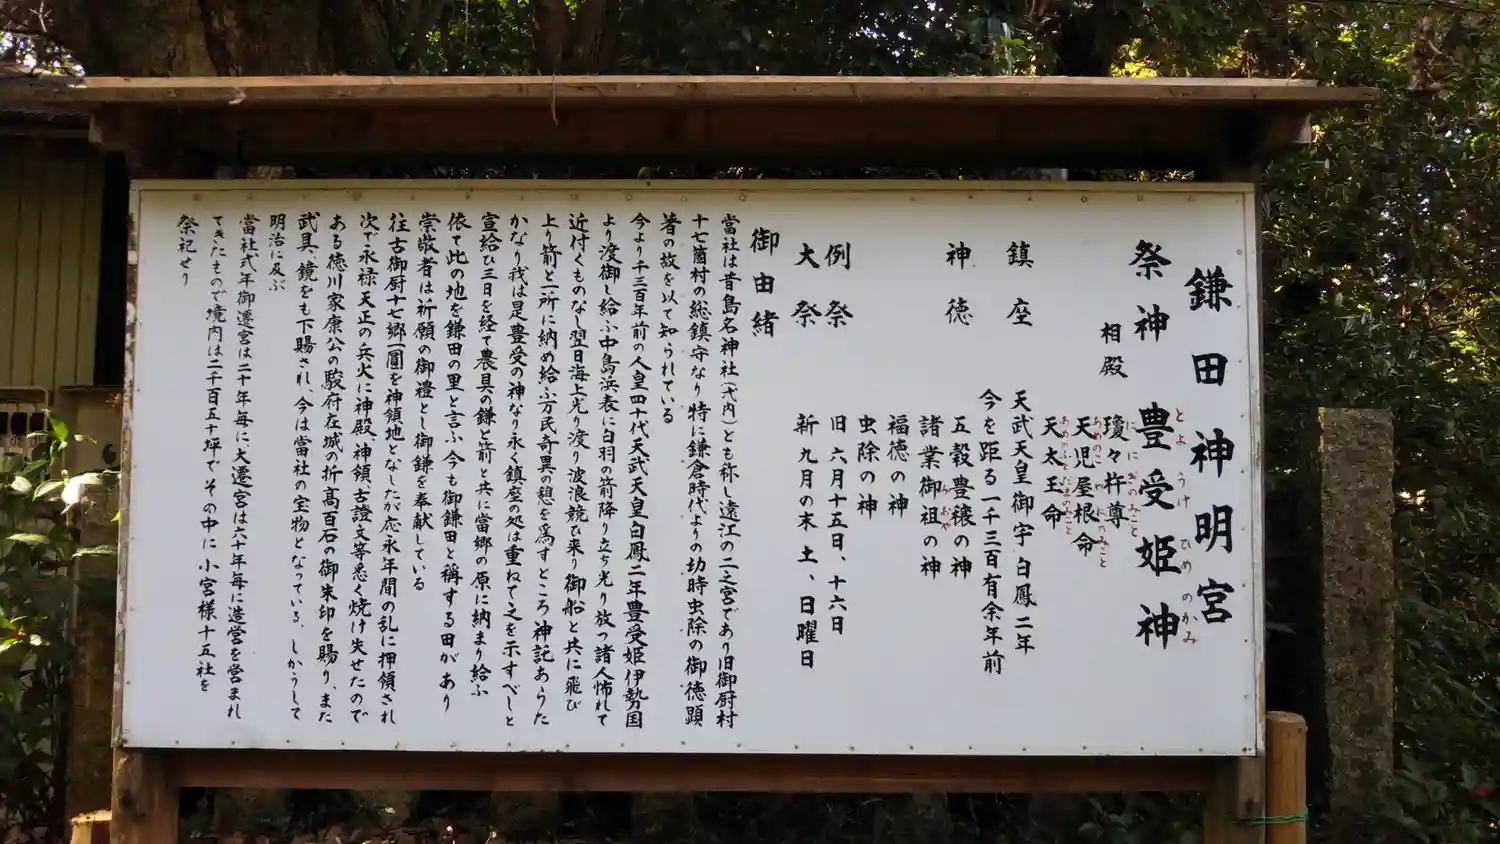 鎌田神明宮
祭神 豊受姫神
とようけ ひめ のかみ
相殿 瓊々杵尊
ににぎのみこと
天児屋根命
あめのこやねのみこと
天太玉命
あめのふとたまのみこと
鎮座 天武天皇御宇 白鳳二年
今を距る一千三百有余年前
神徳 五穀豊穣の神
諸業御祖の神
みおや
福徳の神
虫除の神
例祭 旧 六月十五日、十六日
大祭 新 九月の末 土、日曜日
御由緒
當社は昔島名神社(式内)とも称し遠江の二之宮であり旧御厨村
十七箇村の総鎮守なり特に鎌倉時代よりの劫時虫除の御徳顕
著の故を以て知られている
今より千三百年前の人皇四十代天武天皇白鳳二年豊受姫伊勢国
より渡御し給ふ中島浜表に白羽の箭降り立ち光り放つ諸人怖れて
近付くものなし翌日海上光り渡り波浪競ひ来り御船と共に飛び
上り箭と一所に納め給ふ万民奇異の憩を為すところ神託あらた
かなり我は是豊受の神なり永く鎮座の処は重ねて之を示すべしと
宣給ひ三日を経て農具の鎌と箭と共に當郷の原に納まり給ふ
依て此の地を鎌田の里と言ふ今も御鎌田と稱する田があり
崇敬者は祈願の御禮とし御鎌を奉献している
往古御厨十七郷一圓を神領地となしたが応永年間の乱に押領され
次で永禄天正の兵火に神殿、神領、古證文等悉く焼け失せたので
ある徳川家康公の駿府在城の折高百石の御朱印を賜り、また
武具、鏡をも下賜され、今は當社の宝物となっている、しかうして
明治に及ぶ
當社式年御遷宮は二十年毎に、大遷宮は六十年毎に造営を営まれ
てきたもので境内は二千百五十坪でその中に小宮様十五社を
祭祀せり